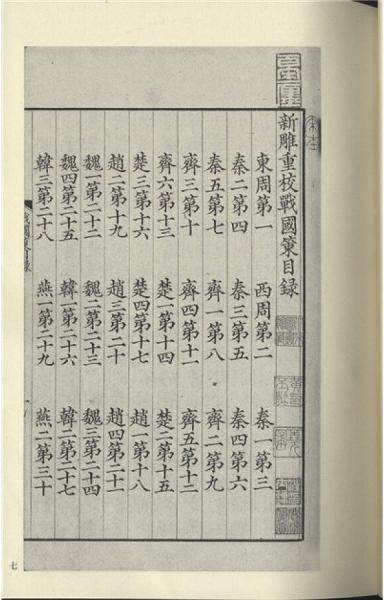 新雕重校戰國策目錄
東周第一 西周第二 秦一第三
秦二第四 秦三第五 秦四第六
秦五第七 齊一第八 齊二第九
齊三第十 齊四第十一 齊五第十二
齊六第十三 楚一第十四 楚二第十五
楚三第十六 楚四第十七 趙一第十八
趙二第十九 趙三第二十 趙四第二十一
魏一第二十二 魏二第二十三 魏三第二十四
魏四第二十五 韓一第二十六 韓二第二十七
韓三第二十八 燕一第二十九 燕二第三十
七